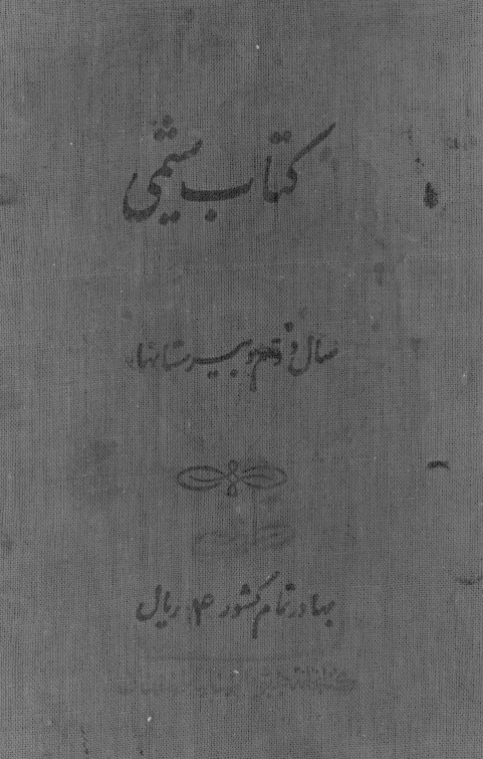 کتاب شیمی
سال دوم دبیرستانها
بها در تمام کشور ۴ ریال